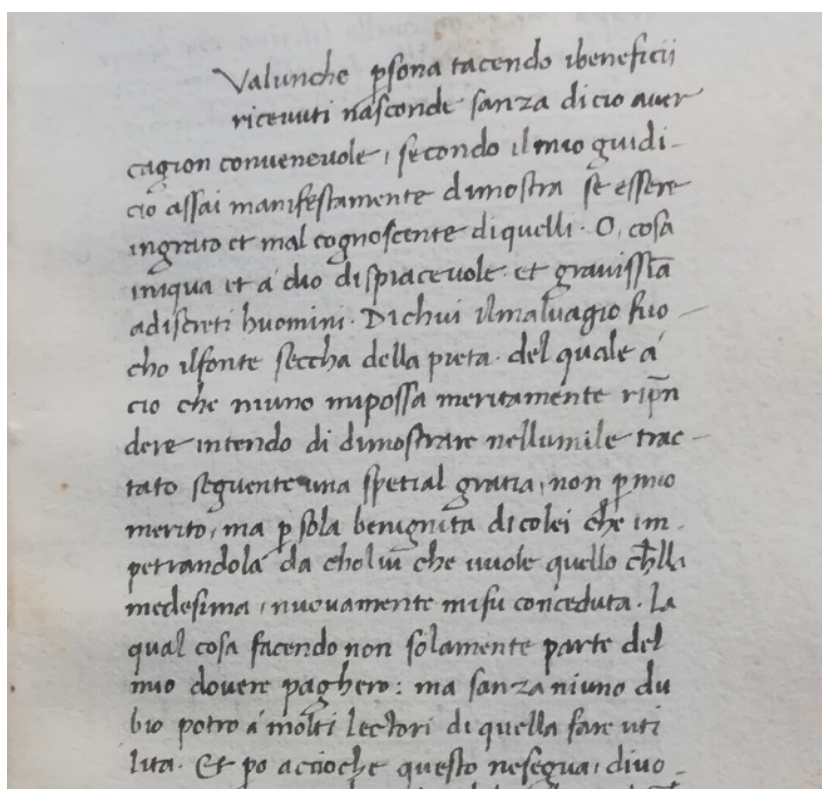 Valunche psona tacendo ibeneficii
ricevuti nasconde sanza dicio aver
cagion convenevole, secondo ilmio guidi-
cio assai manifestamente dimostra se essere
ingrato et mal cognoscente diquelli. O, cosa
iniqua et a dio dispiacevole et gravissīa
adiscreti huomini. Dichui ilmalvagio fuo-
cho ilfonte seccha della pieta. del quale a
cio che niuno mipossa meritamente rip̄n
dere intendo di dimostrare nellumile trac-
tato seguente una spetial gratia, non p mio
merito, ma p sola benignita dicolei che im-
petrandola da cholui che vuole quello ch̄lla
medesima, nuovamente mifu conceduta. La
qual cosa facendo non solamente parte del
mio dovere paghero: ma sanza niuno du
bio potro a molti lectori di quella fare uti
lita. Et po accioche questo nesegua, divo-